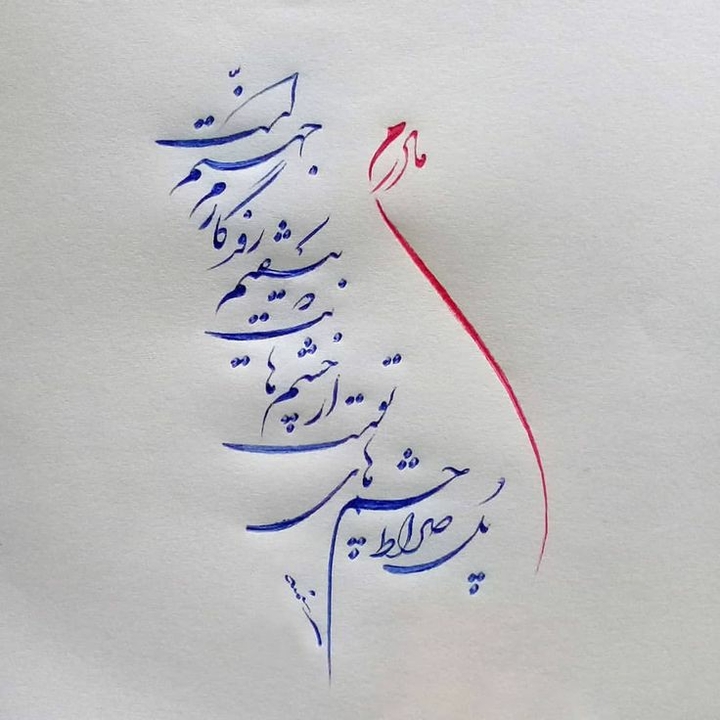 مادرم
پل صراط
چشم های
توست
از چشم ها
یت
بیفتم
روزگارم
جهنم
است